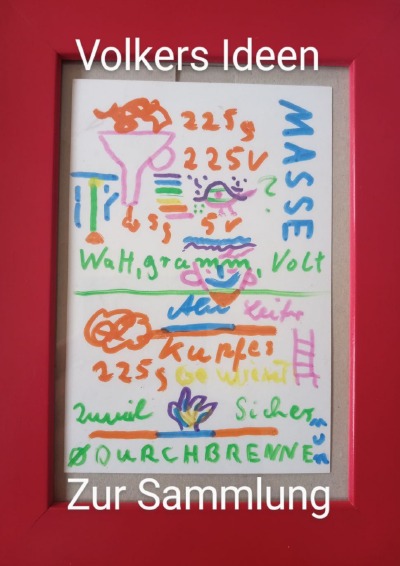 Volkers Ideen
225g
225V
MASSE
?
45g 5V
Watt, gramm, Volt
Alu Leite
Kupfer
225g Gewicht
Zuviel Sicher
ØDURCHBRENNEN
Zur Sammlung